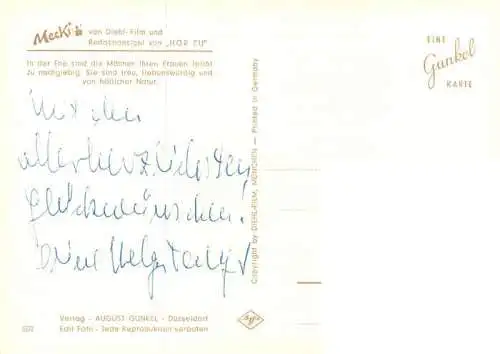 Mecki von Diehl-Film und
Redaktionsigel von „HÖR ZU"
In der Ehe sind die Männer ihren Frauen leicht
zu nachgiebig. Sie sind treu, liebenswürdig und
von häßlicher Natur.
EINE
Gunkel
KARTE
Mit den
allerherzlichsten
Glückwünschen!
Deine Helga
Copyright by DIEHL-FILM, MÜNCHEN — Printed in Germany
Verlag - AUGUST GUNKEL - Düsseldorf
Edit Foto - Jede Reproduktion verboten
Agfa